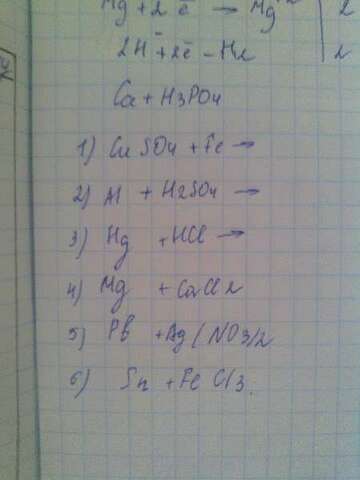 Mg + 2ē → Mg⁺² | 2
2H⁻ + 2ē - H2 | 2
Ca + H3PO4
1) CuSO4 + Fe →
2) Al + H2SO4 →
3) Hg + HCl →
4) Mg + CaCl2
5) Pb + Ag(NO3)2
6) Sn + FeCl3.